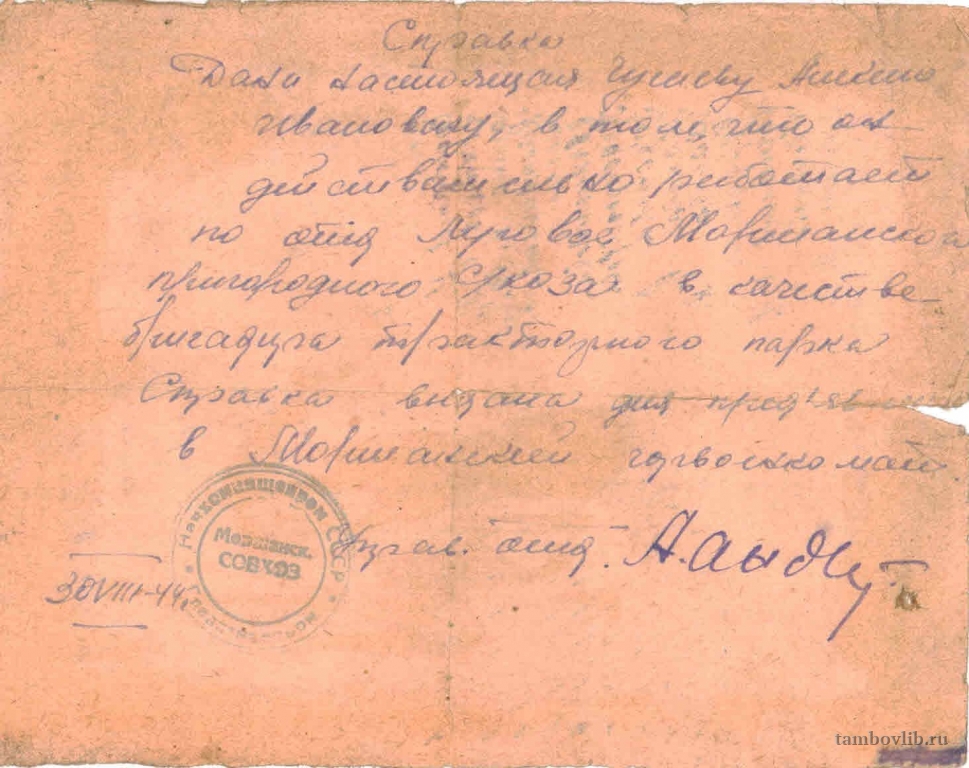 Справка
Дана настоящая Чугаеву
Ивановичу, в том, что он
действительно работает
по отд Луговое Моршанского
пригородного с/хоза в качестве
бригадира тракторного парка
Справка выдана для
в Моршанский горвоенкомат
Управ. отд.
30/VIII-44г
Наркомпищепром СССР
Моршанск.
СОВХОЗ
tambovlib.ru